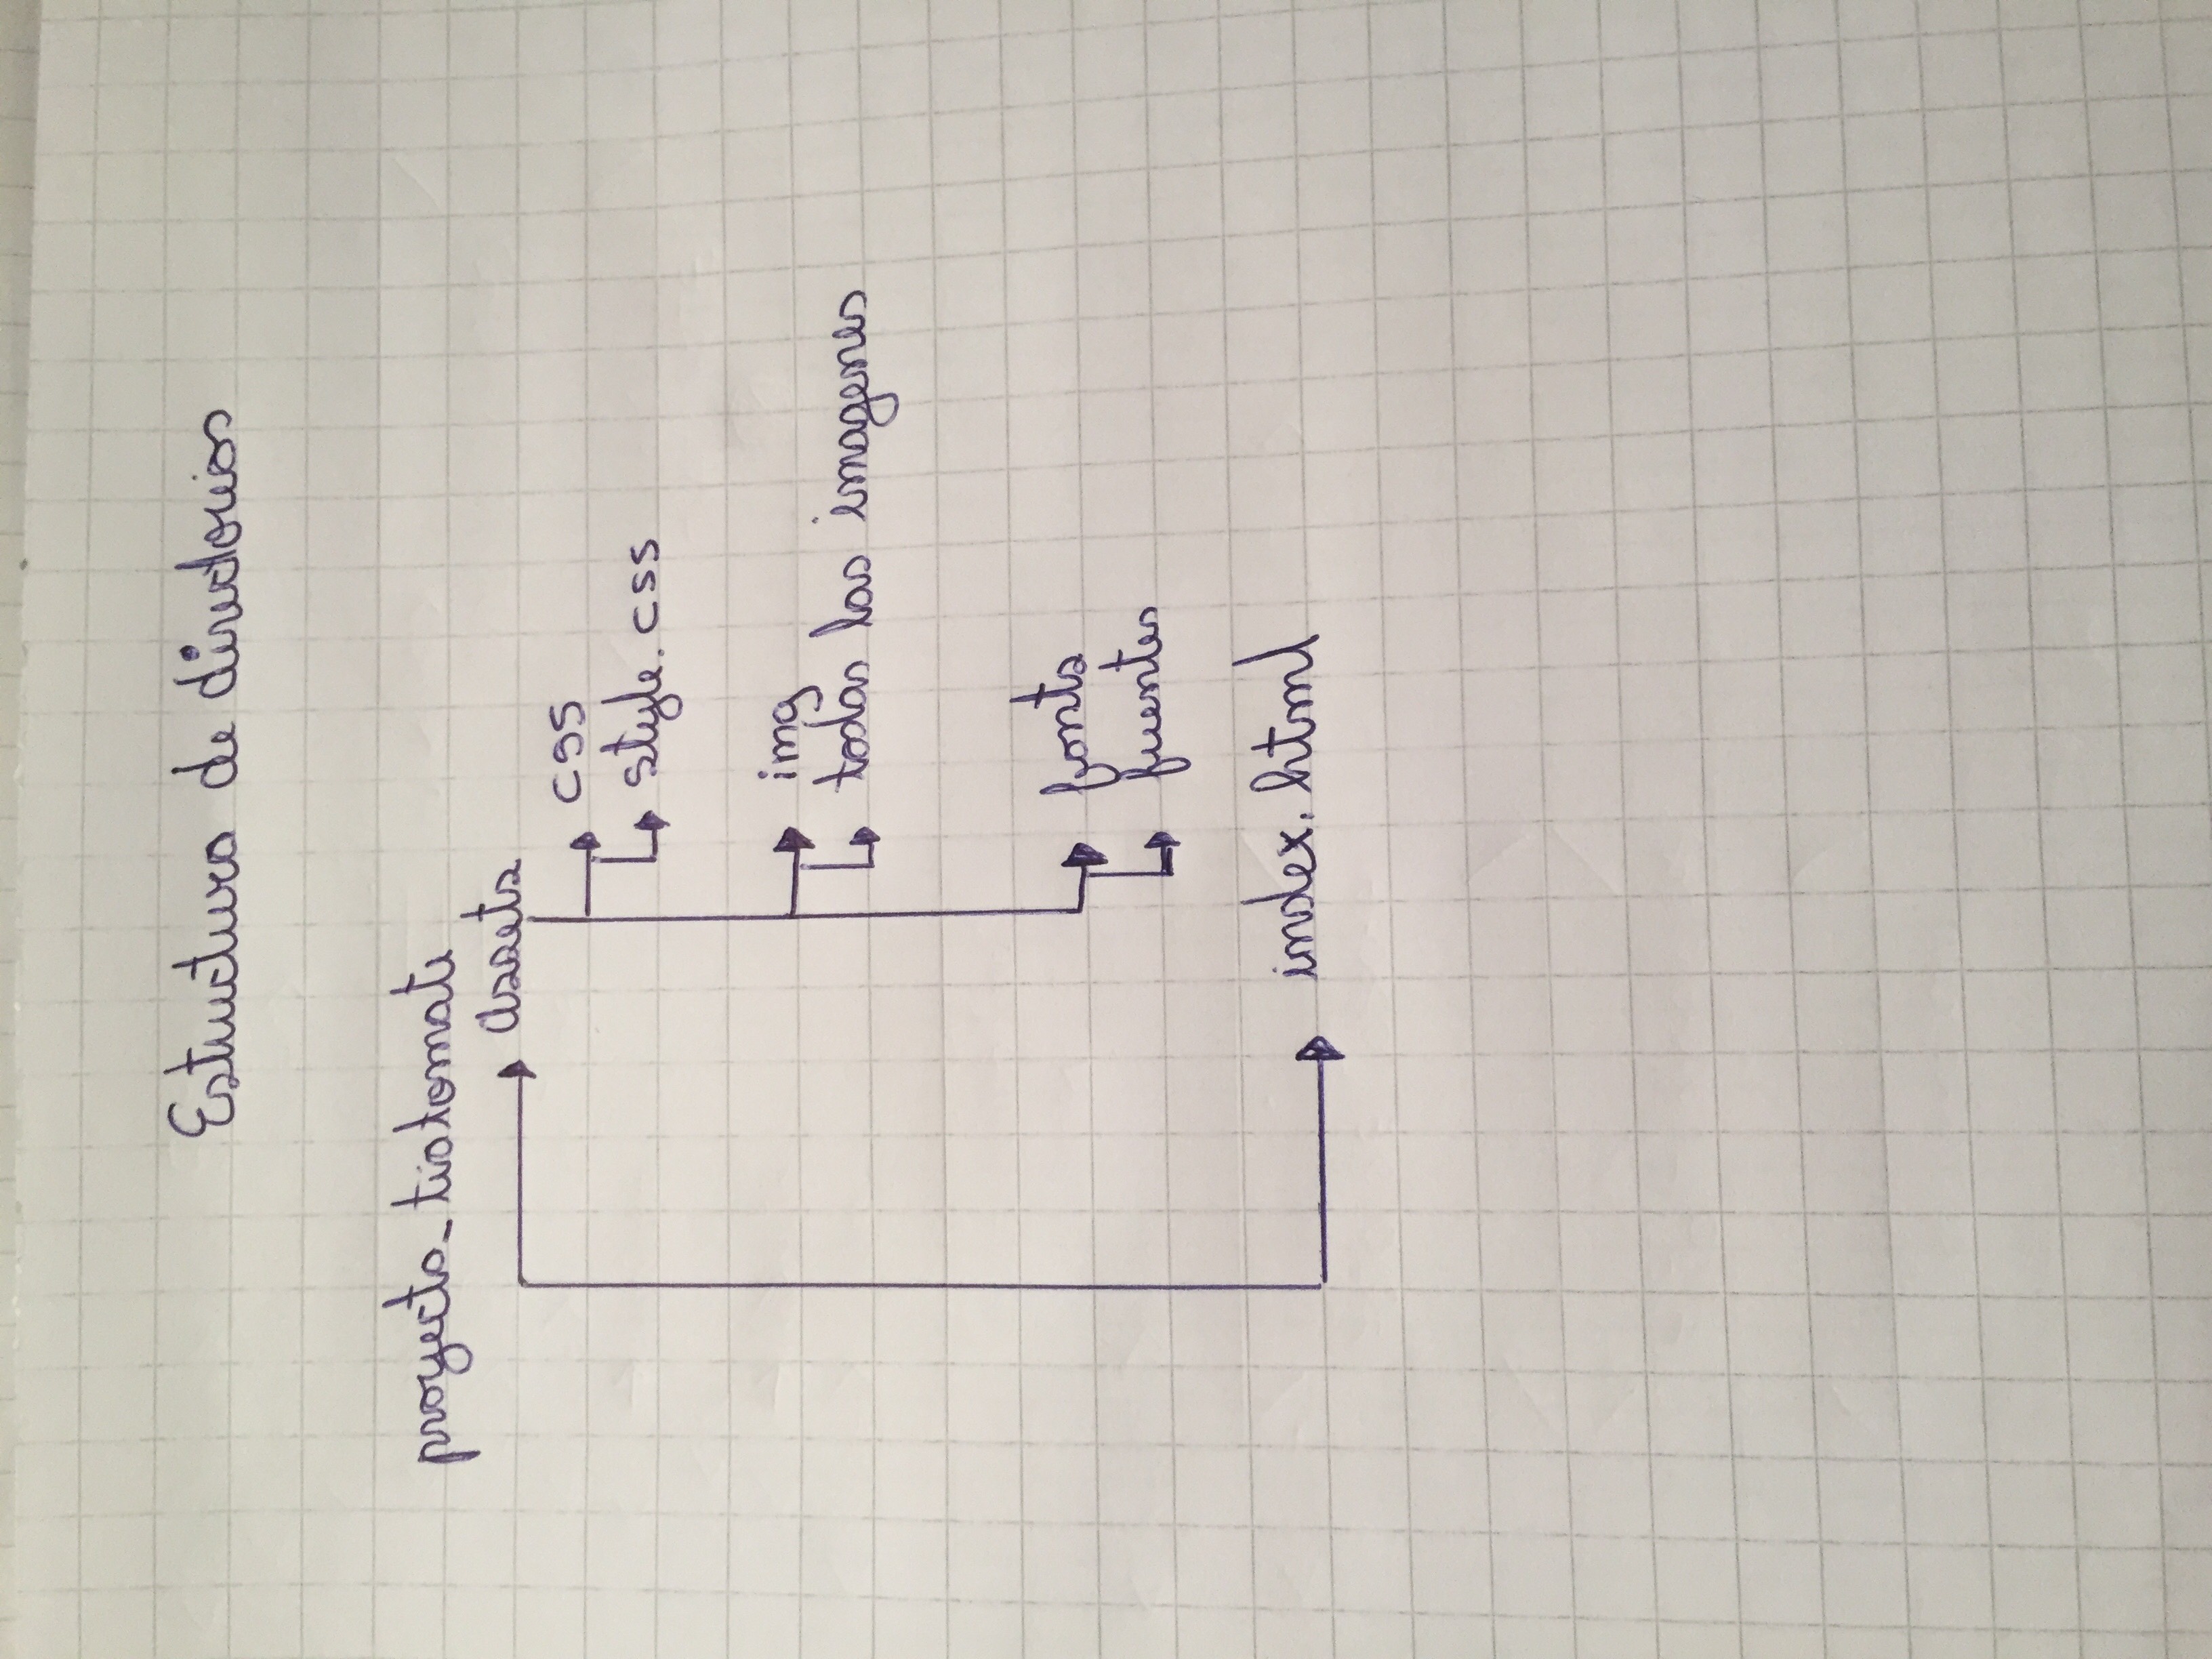 Estructura de directorios
proyecto_tiotomate
assets
css
style.css
img
todas las imagenes
fonts
fuentes
index.html